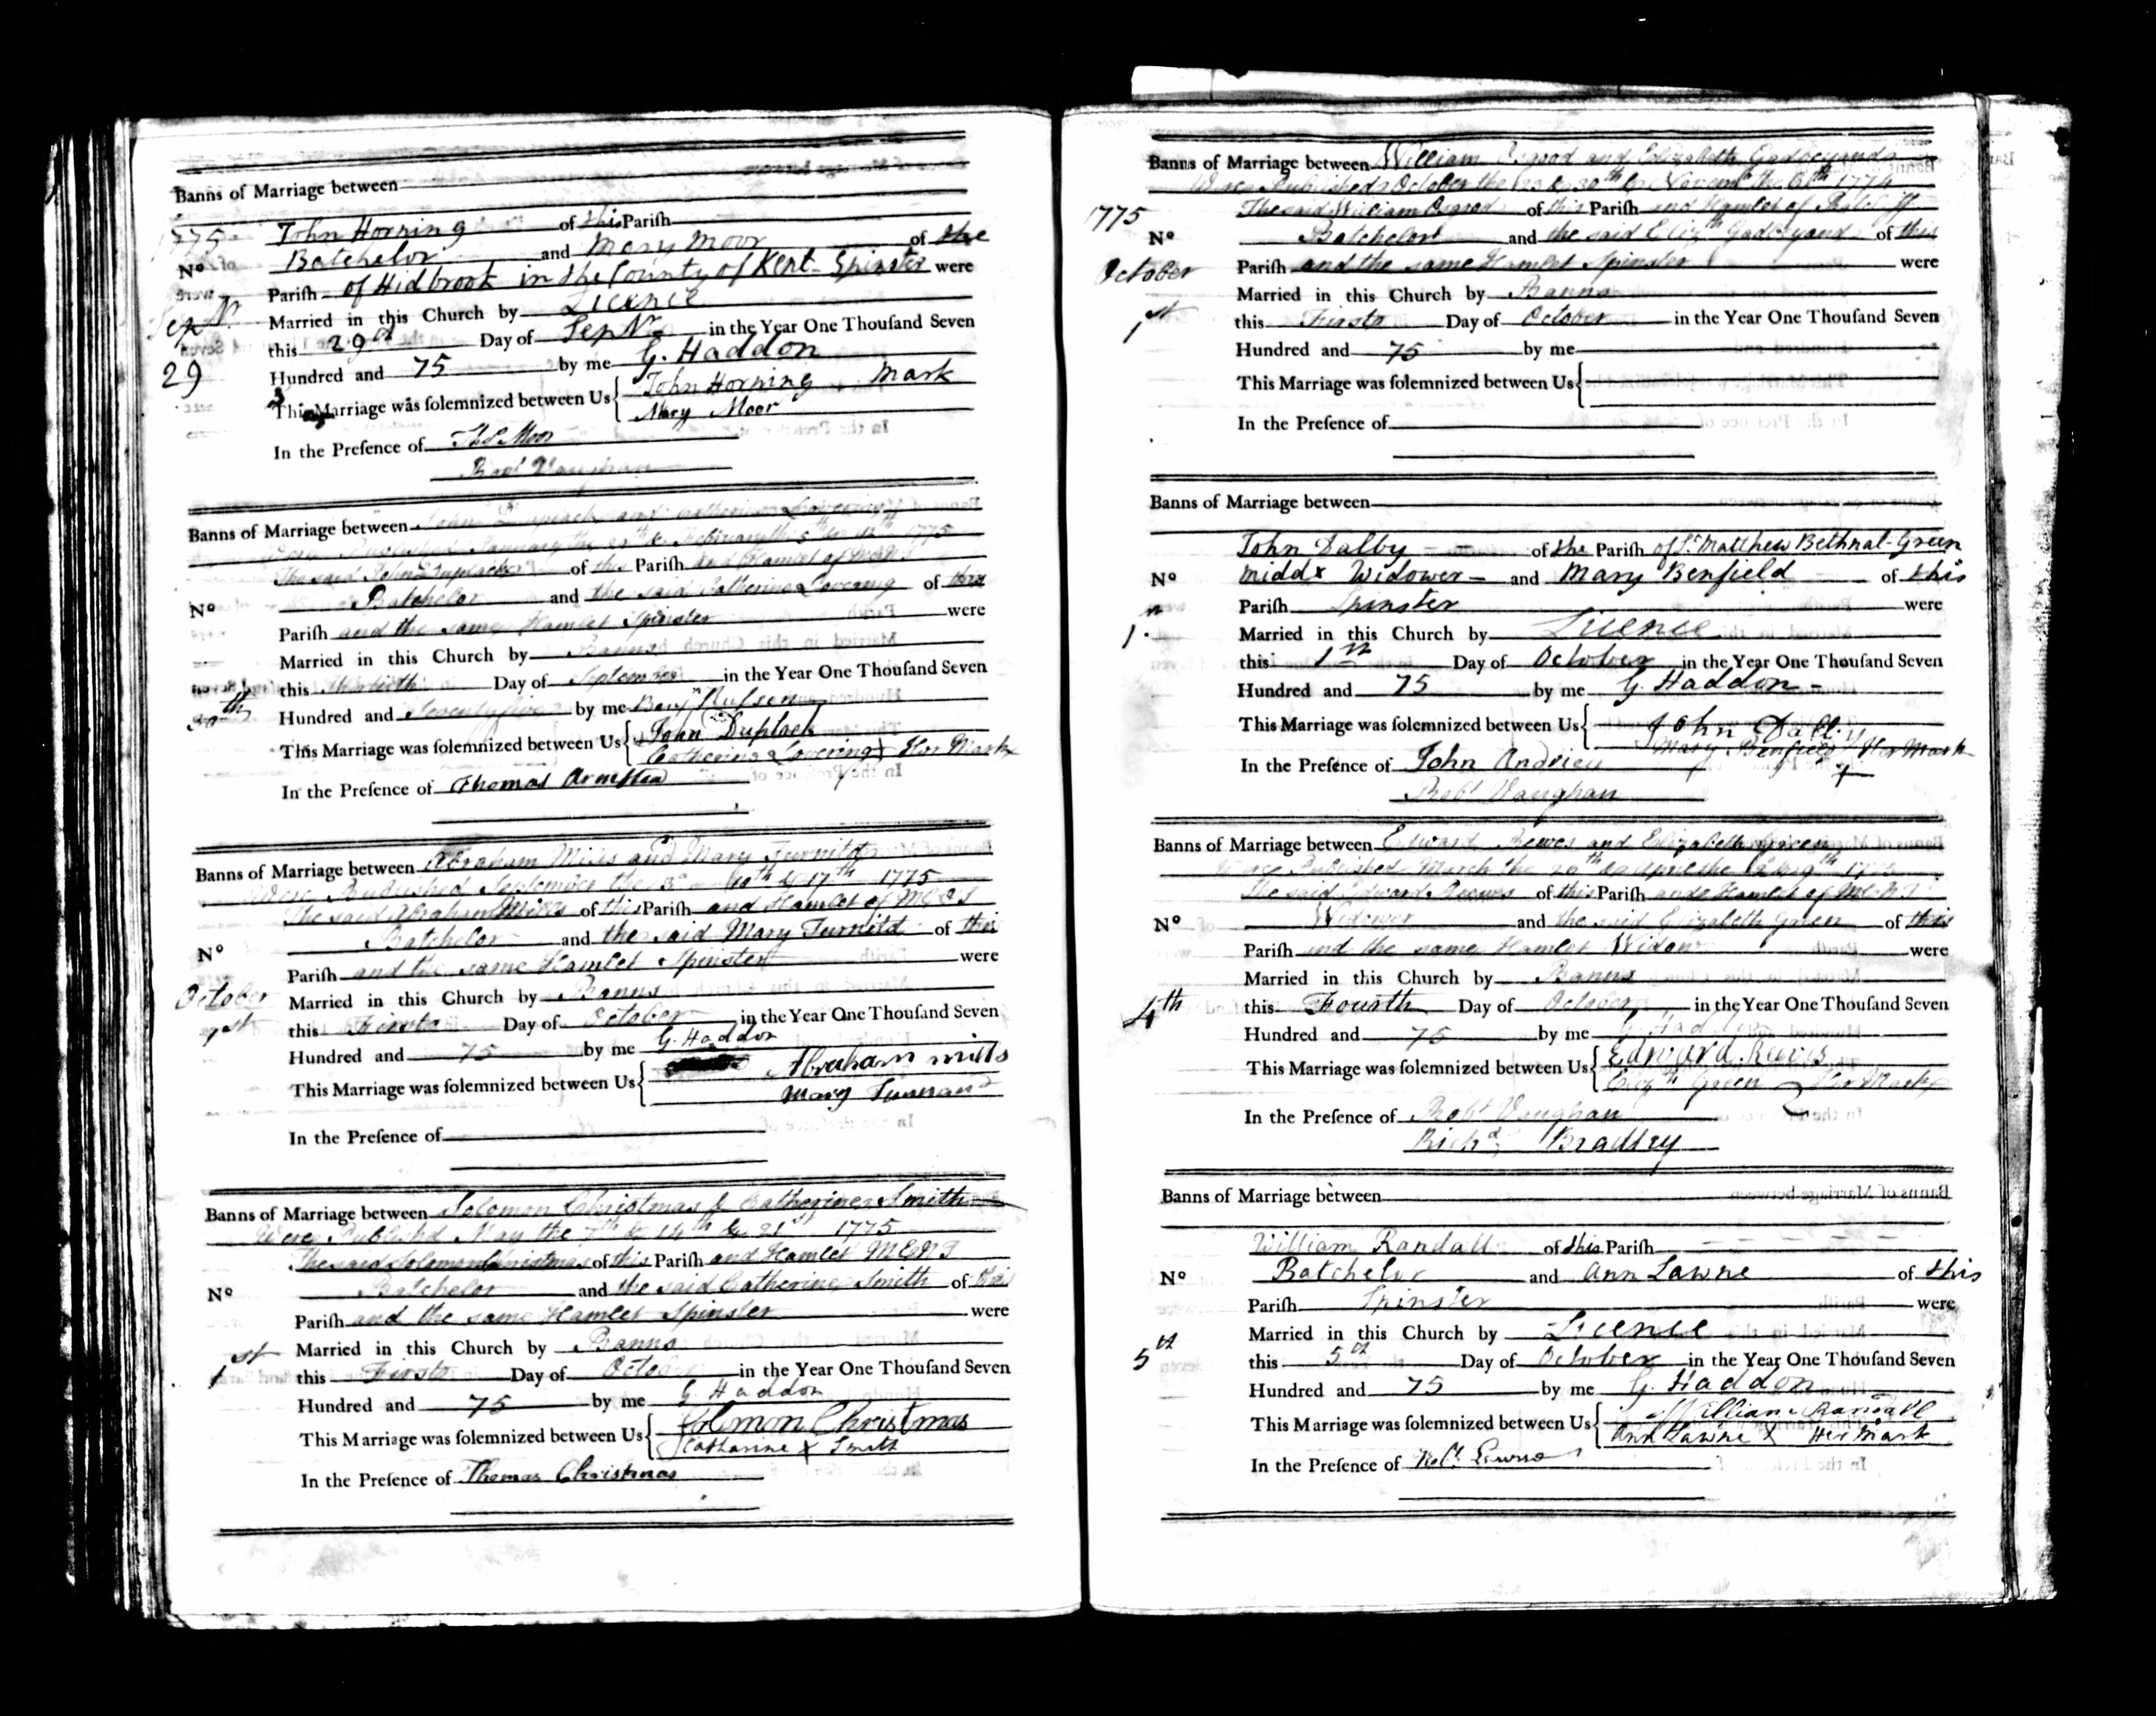 Banns of Marriage between
1775 John Horning of this Parish
Nº Batchelor and Mary Moor of the
Parish of Kidbrook in the County of Kent Spinster were
Sepr. Married in this Church by Licence
this 29th Day of Sepr in the Year One Thousand Seven
29 Hundred and 75 by me G. Haddon
This Marriage was solemnized between Us John Horning Mark
Mary Moor
In the Presence of Moor
Robt Vaughan
Banns of Marriage between John Duplack and Catherine Lovering
Were Published January the 29th & February the 5th & 12th 1775
The said John Duplack of this Parish and Hamlet of M E O T
Nº Batchelor and the said Catherine Lovering of this
Parish and the same Hamlet Spinster were
Married in this Church by Banns
this thirtieth Day of September in the Year One Thousand Seven
30th Hundred and Seventy five by me Benjn Russen
This Marriage was solemnized between Us John Duplack
Catherine Lovering X Her Mark
In the Presence of Thomas
Banns of Marriage between Abraham Mills and Mary Turnitd
Were Published September the 3d 10th & 17th 1775
The said Abraham Mills of this Parish and Hamlet of M E O T
Nº Batchelor and the said Mary Turnitd of this
Parish and the same Hamlet Spinster were
October Married in this Church by Banns
1st this First Day of October in the Year One Thousand Seven
Hundred and 75 by me G. Haddon
This Marriage was solemnized between Us Abraham mills
Mary
In the Presence of
Banns of Marriage between Solomon Christmas & Catherine Smith
Were Published May the 7th & 14th & 21st 1775
The said Solomon Christmas of this Parish and Hamlet M E O T
Nº Batchelor and the said Catherine Smith of this
Parish and the same Hamlet Spinster were
Married in this Church by Banns
1st this First Day of Octo in the Year One Thousand Seven
Hundred and 75 by me G Haddon
This Marriage was solemnized between Us Solomon Christmas
Catharine X Smith
In the Presence of Thomas Christmas
Banns of Marriage between William Osgood and Elizabeth
Were Published October the 23 & 30th & Novemr the 6th 1774
1775 The said William Osgood of this Parish and Hamlet of Ratcliff
Nº Batchelor and the said Elizth of this
October Parish and the same Hamlet Spinster were
Married in this Church by Banns
1st this First Day of October in the Year One Thousand Seven
Hundred and 75 by me
This Marriage was solemnized between Us
In the Presence of
Banns of Marriage between
John Dalby of the Parish of St Matthew Bethnal-Green
Nº Middx Widower and Mary Benfield of this
Parish Spinster were
1. Married in this Church by Licence
this 1st Day of October in the Year One Thousand Seven
Hundred and 75 by me G. Haddon
This Marriage was solemnized between Us John Dalby
Mary Benfield Her Mark
In the Presence of John Andrieu X
Robt Vaughan
Banns of Marriage between Edward Reeves and Elizabeth Green
Were Published March the 26th & April the 2 & 9th 1775
The said Edward Reeves of this Parish and Hamlet of M E O T
Nº Widower and the said Elizabeth Green of this
Parish and the same Hamlet Widow were
Married in this Church by Banns
4th this Fourth Day of October in the Year One Thousand Seven
Hundred and 75 by me G. Haddon
This Marriage was solemnized between Us Edward Revis
Elizth Green Her Mark
In the Presence of Robt Vaughan
Richd Bradley
Banns of Marriage between
William Randall of this Parish
Nº Batchelor and Ann Lawne of this
Parish Spinster were
Married in this Church by Licence
5th this 5th Day of October in the Year One Thousand Seven
Hundred and 75 by me G. Haddon
This Marriage was solemnized between Us William Randall
Ann Lawne X Her Mark
In the Presence of